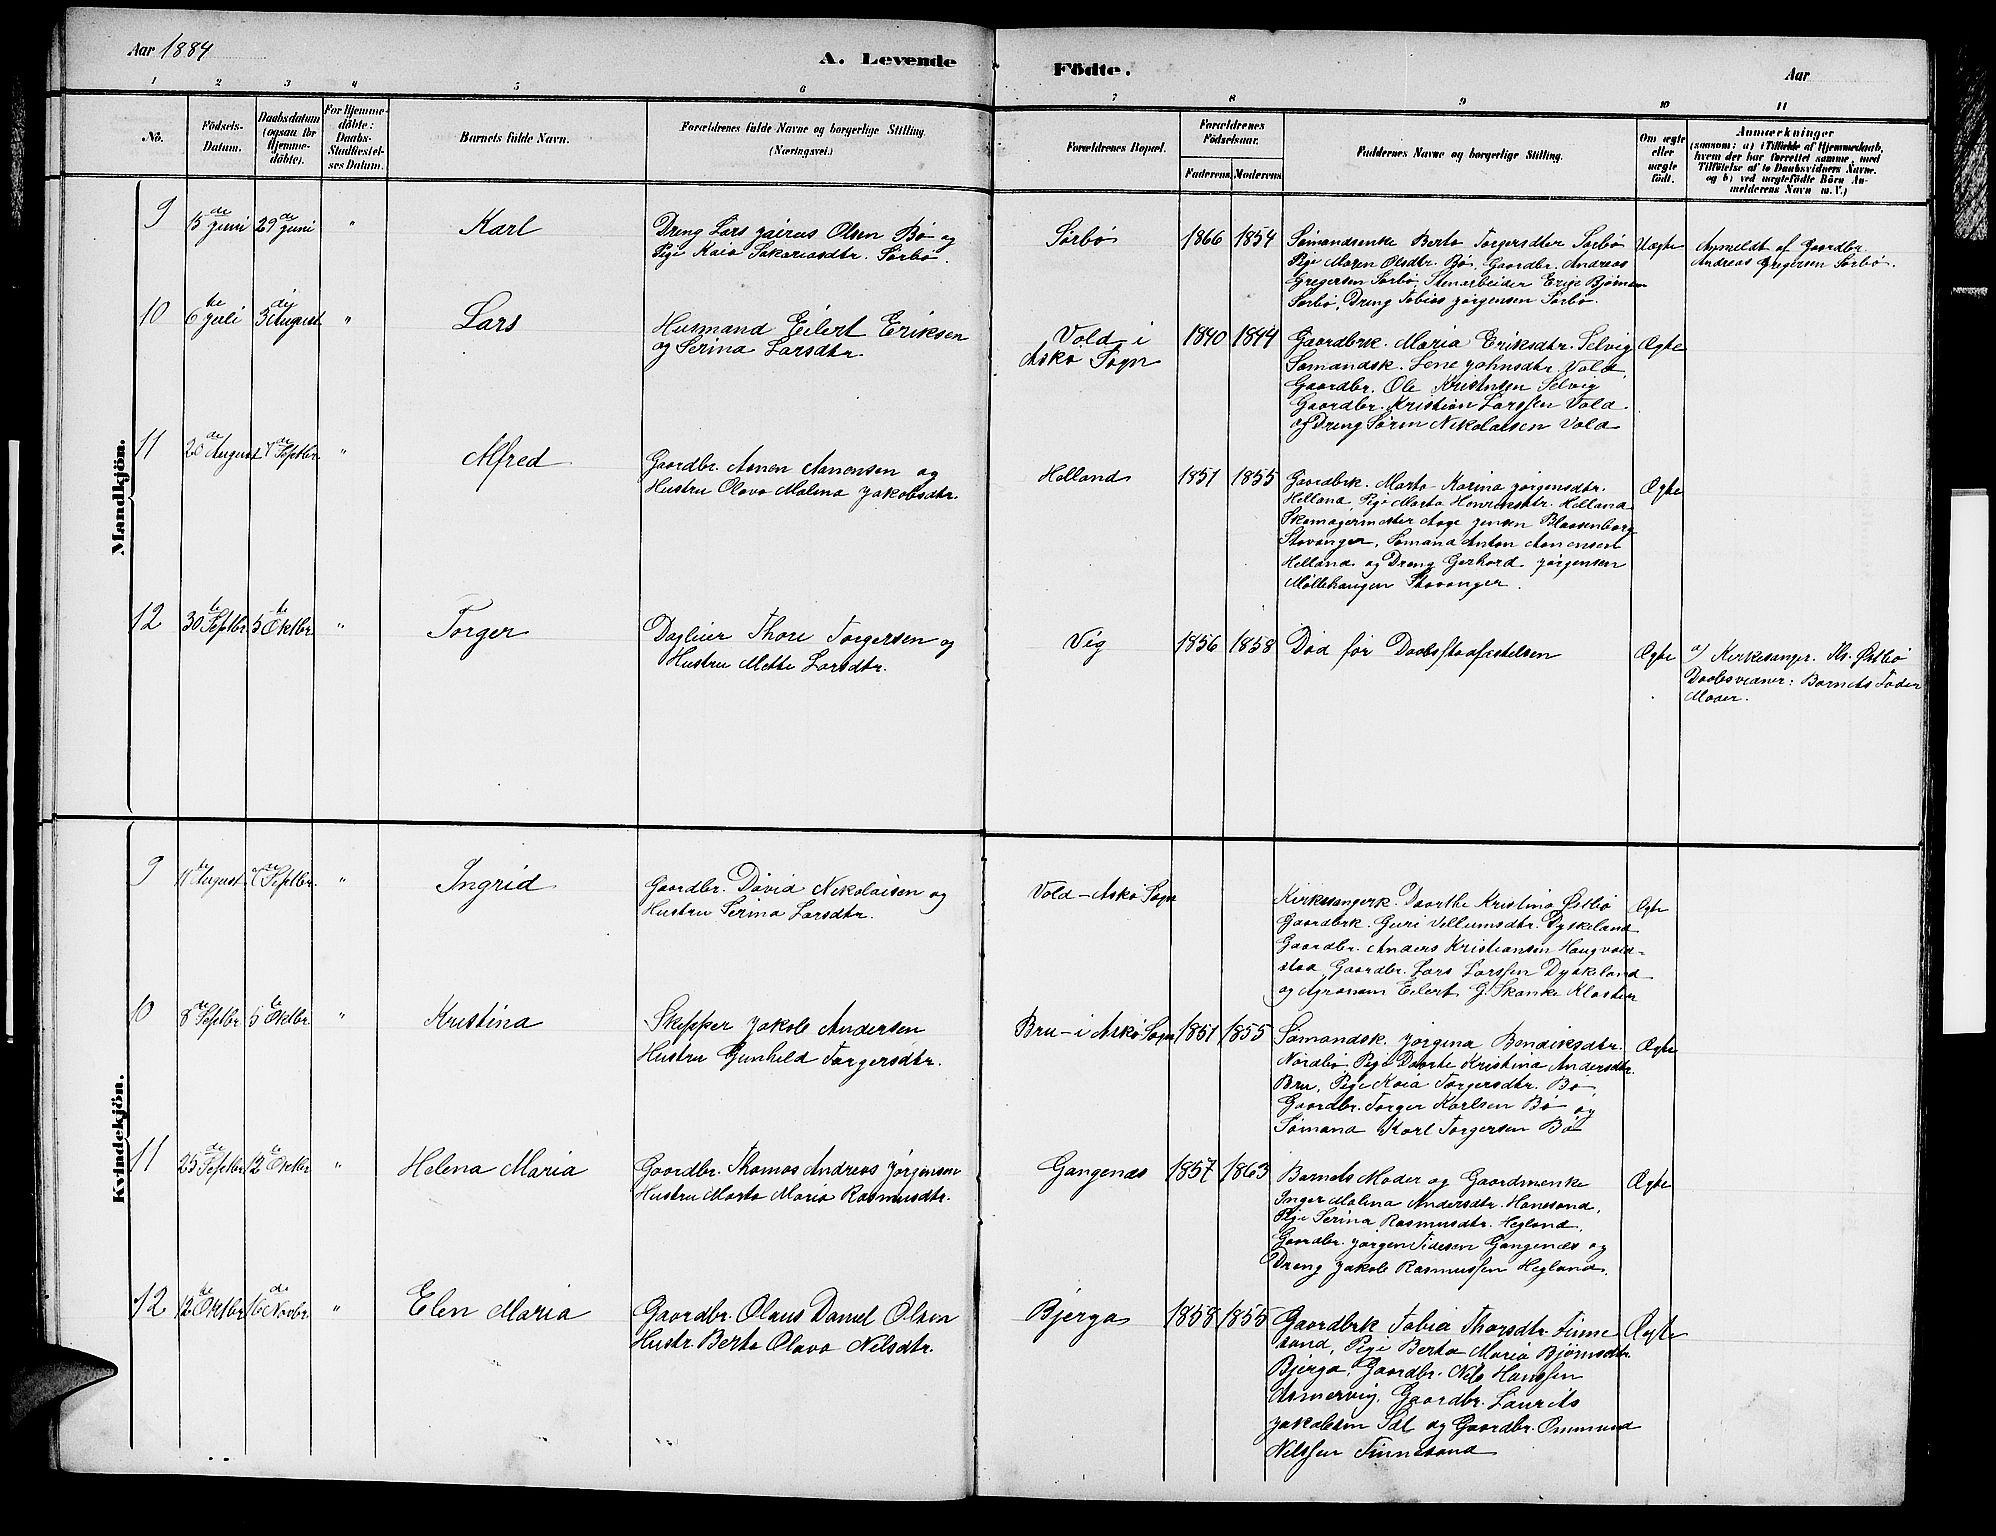 Aar 1884
A. Levende
Födte.
Aar
1 2 3 4 5 6 7 8 9 10 11
No.
Födsels-Datum.
Daabsdatum (ogsaa for Hjemme-döbte).
For Hjemme-döbte: Daabs-Stadfæstel-ses Datum.
Barnets fulde Navn.
Forældrenes fulde Navne og borgerlige Stilling.
(Næringsvei.)
Forældrenes Bopæl.
Forældrenes Födselsaar.
Faderens Moderens
Faddernes Navne og borgerlige Stilling.
Om ægte eller uægte födt.
Anmærkninger
(saasom: a) i Tilfælde af Hjemmedaab,
hvem der har forrettet samme, med
Tilföielse af to Daabsvidners Navne.
og b) ved uægtefödte Börn An-
melderens Navn m. V.)
Mandkjön.
9 15de juni 29de juni " Karl
Dreng Lars Jairus Olsen Bø og
Pige Kaia Sakariasdtr. Sørbø.
Sørbø 1866 1854
Sømandsenke Berta Torgersdter Sørbø
Pige Maren Olsdtr. Bø, Gaardbr. Andreas
Gregersen Sørbø, Stenarbeider Erige Bjørnsen
Sørbø, Dreng Tobias Jørgensen Sørbø.
Uægte
Anmeldt af Gaardbr.
Andreas Gregersen Sørbø.
10 6te juli 3die August " Lars
Husmand Eilert Eriksen
og Serina Larsdtr.
Vold i
Askø Sogn
1840 1844
Gaardbrk. Maria Eriksdtr. Selvig
Sømandsk. Lene Johnsdtr. Vold,
Gaardbr. Ole Kristensen Selvig
Gaardbr. Kristian Larssen Vold
og Dreng Søren Nikolaisen Vold
Ægte
11 20de August 7de Septbr. " Alfred
Gaardbr. Aanen Aanensen og
Hustru Olava Malena Jakobsdtr.
Helland 1851 1855
Gaardbrk. Marta Karina Jørgensdtr.
Helland, Pige Marta Henriksdtr. Helland
Skomagermester Aage Jensen Blaasenborg
Stavanger, Sømand Anton Aanensen
Helland og Dreng Gerhard Jørgensen
Møllehaugen Stavanger.
Ægte
12 30te Septbr. 5te Oktbr. " Torger
Dagleier Thore Torgersen og
Hustru Mette Larsdtr.
Vig 1856 1858
Død før Daabsstadfæstelsen
Ægte
a) Kirkesanger. Ths. Østbø
Daabsvidner: Barnets Fader
Moder.
Kvindekjön.
9 11te August 7de Septbr. " Ingrid
Gaardbr. David Nikolaisen og
Hustru Serina Larsdtr.
Vold - Askø Sogn
Kirkesangerk. Daarthe Kristina Østbø
Gaardbrk. Guri Villumsdtr. Dyskeland
Gaardbr. Anders Kristiansen Haugvald-
stad, Gaardbr. Lars Larssen Dyskeland
og Agronom Eilert G. Skanke Kloster
Ægte
10 8de Septbr. 5te Oktbr. " Kristina
Skipper Jakob Andersen
Hustru Gunhild Torgersdtr.
Bru - i Askø Sogn 1851 1855
Sømandsk. Jørgina Bendiksdtr.
Nordbø, Pige Dorte Kristina Andersdtr.
Bru, Pige Kaia Torgersdtr. Bø
Gaardbr. Torger Karlsen Bø og
Sømand Karl Torgersen Bø
Ægte
11 25de Septbr. 12te Oktbr. " Helena Maria
Gaardbr. Thomas Andreas Jørgensen
Hustru Marta Maria Rasmusdtr.
Gangenæs 1857 1863
Barnets Moder og Gaardmenke
Inger Malena Andersdtr. Hanesand,
Pige Serina Rasmusdtr. Hegland,
Gaardbr. Jørgen Tidesen Gangenæs og
Dreng Jakob Rasmussen Hegland.
Ægte
12 12te Oktbr. 16de Novbr. " Elen Maria
Gaardbr. Olaus Daniel Olsen
Hustr. Berta Olava Nilsdtr.
Bjerga 1858 1855
Gaardbrk Tobia Thorsdtr. Finne
sand, Pige Berta Maria Bjørnsdtr.
Bjerga, Gaardbr. Nils Hanssen
Asmervig, Gaardbr. Laurits
Jakobsen Sæl og Gaardbr. Ommund
Nilssen Finnesand
Ægte